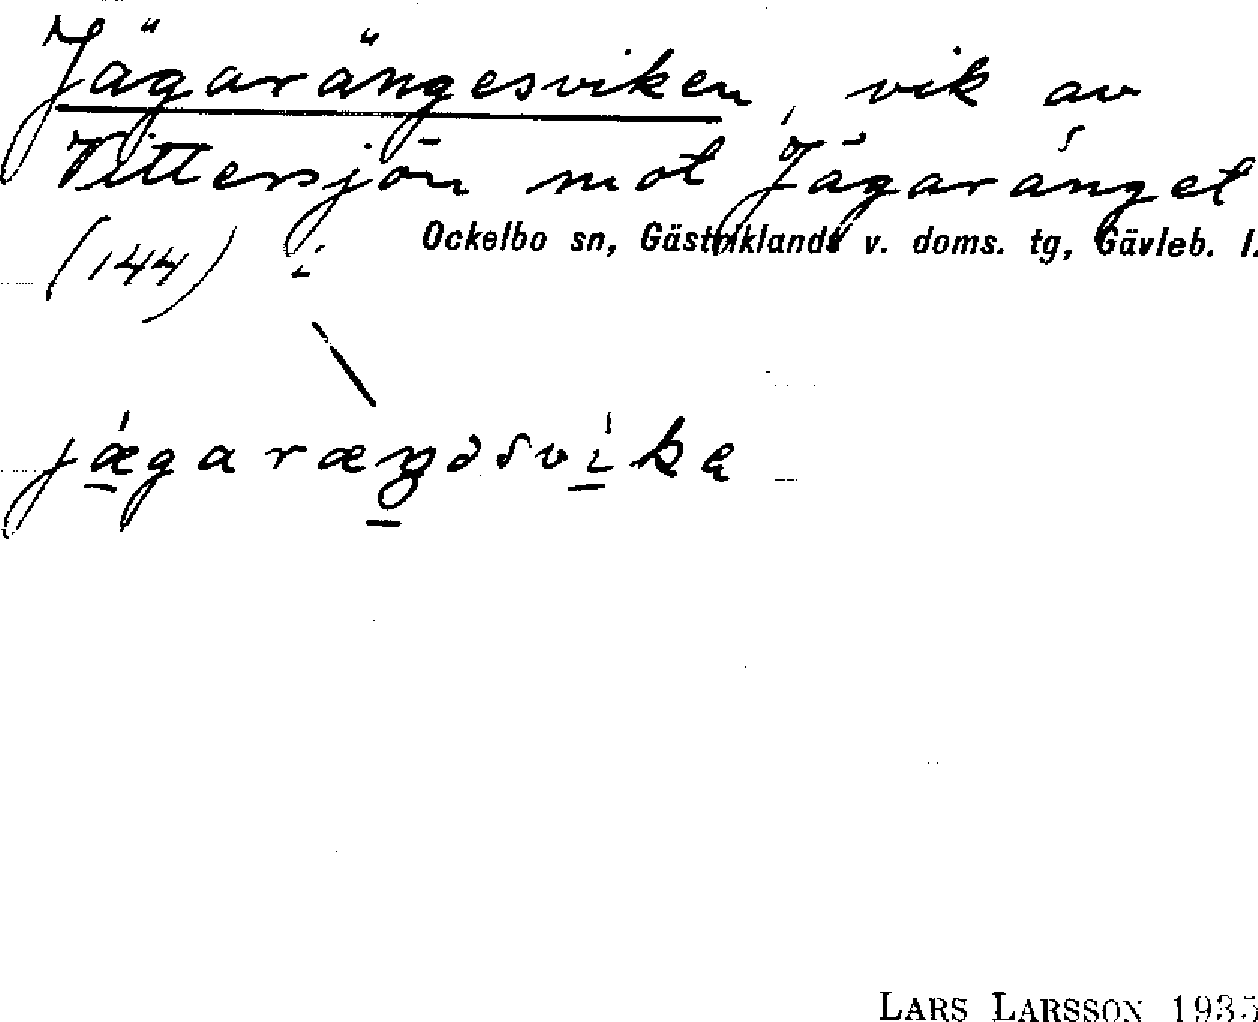 Jägarängesviken, vik av
Vittersjön mot Jägaränget
(144)
Ockelbo sn, Gästriklands v. doms. tg, Gävleb. l.
LARS LARSSON 1935